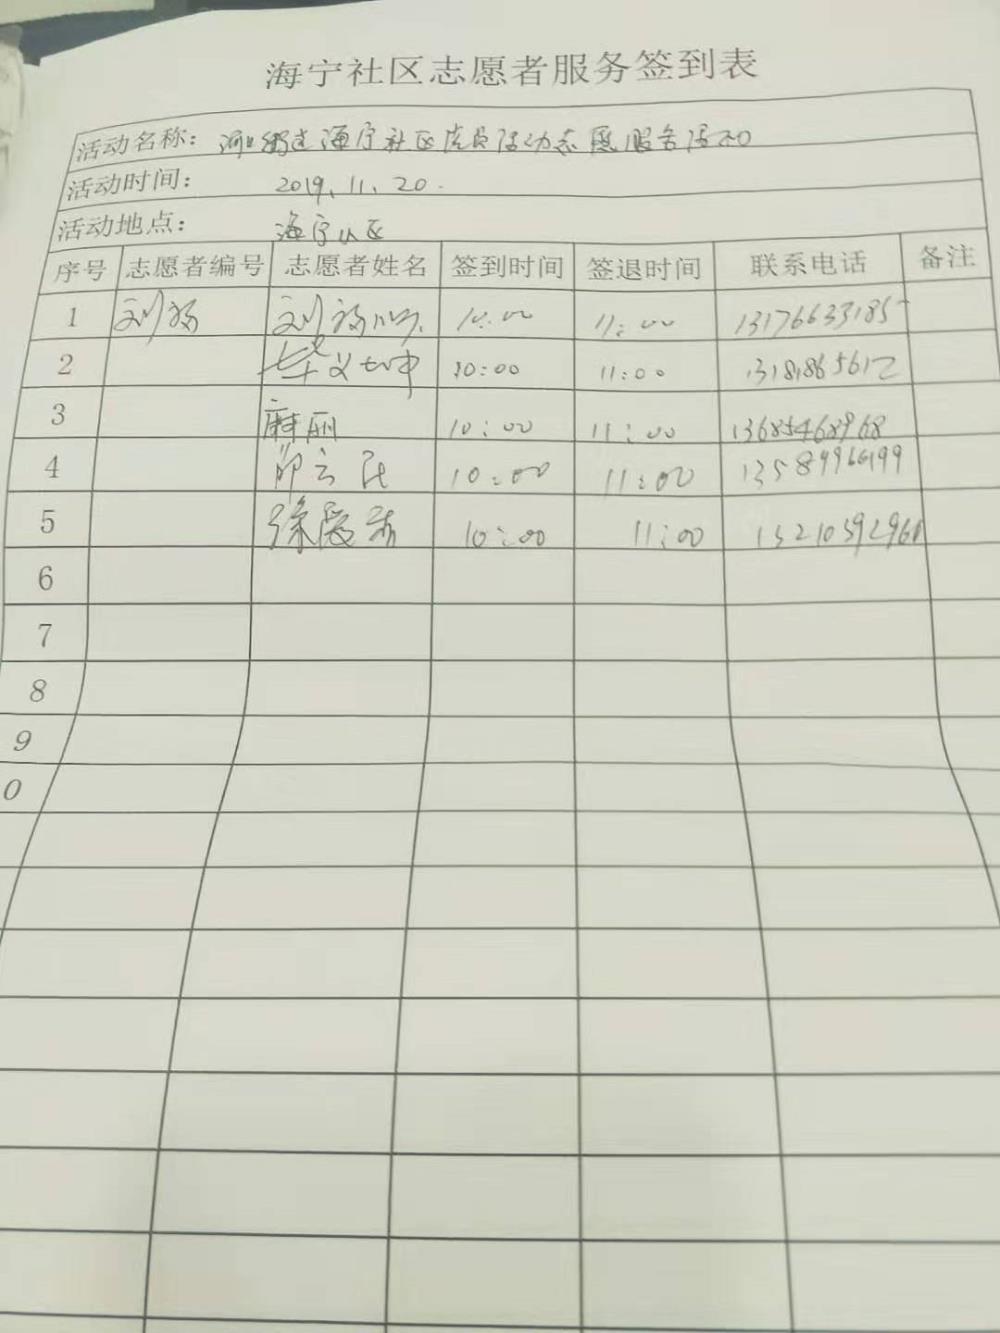 海宁社区志愿者服务签到表
活动名称: 海宁社区党员活动志愿服务活动
活动时间: 2019.11.20.
活动地点: 海宁社区
序号 志愿者编号 志愿者姓名 签到时间 签退时间 联系电话 备注
1 刘 刘 10:00 11:00 13176633185
2 10:00 11:00 13181865612
3 麻丽 10:00 11:00 13685468968
4 云 10:00 11:00 13589966199
5 徐 10:00 11:00 15210592960
6
7
8
9
0